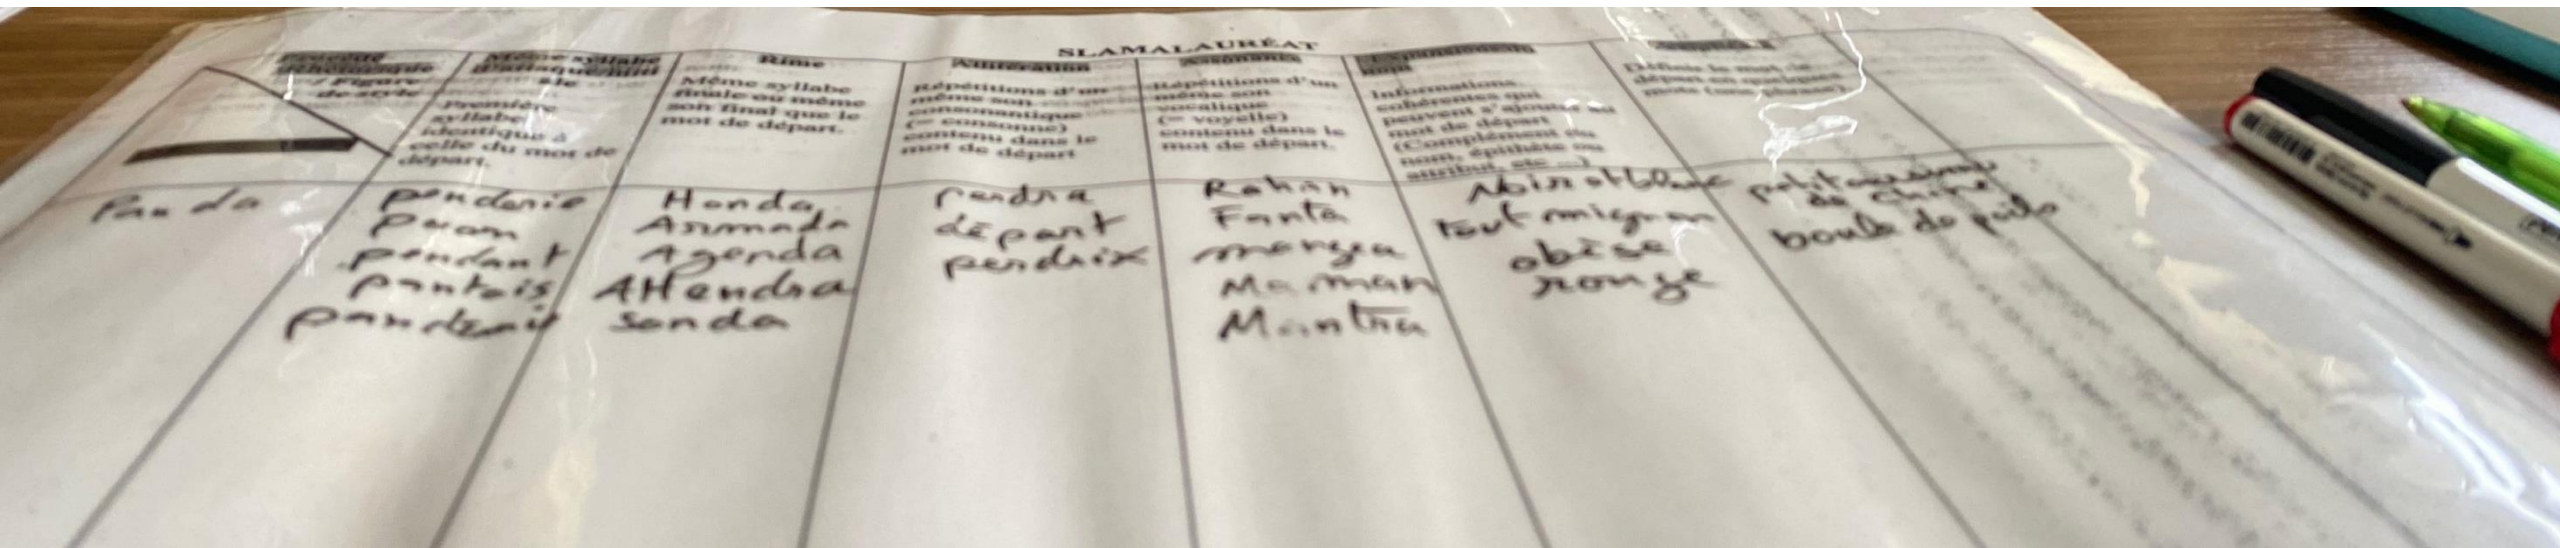 SLAMALAURÉAT
Procédé
rhétorique
/ Figure
de style
Même syllabe
d'attaque/init
iale
Première
syllabe
identique à
celle du mot de
départ.
Rime
Même syllabe
finale ou même
son final que le
mot de départ.
Allitération
Répétitions d'un
même son
consonantique
(= consonne)
contenu dans le
mot de départ
Assonance
Répétitions d'un
même son
vocalique
(= voyelle)
contenu dans le
mot de départ.
Informations
cohérentes qui
peuvent s'ajouter au
mot de départ
(Complément du
nom, épithète ou
attribut, etc ...)
Définir le mot de
départ en quelques
mots (une phrase).
Panda
penderie
paon
pendant
pantois
Honda
Armada
Agenda
Attendra
Sonda
perdra
départ
perdrix
Rahan
Fanta
mangea
Maman
Mantra
Noir et blanc
tout mignon
obèse
rouge
petit
de Chine
boule de poils